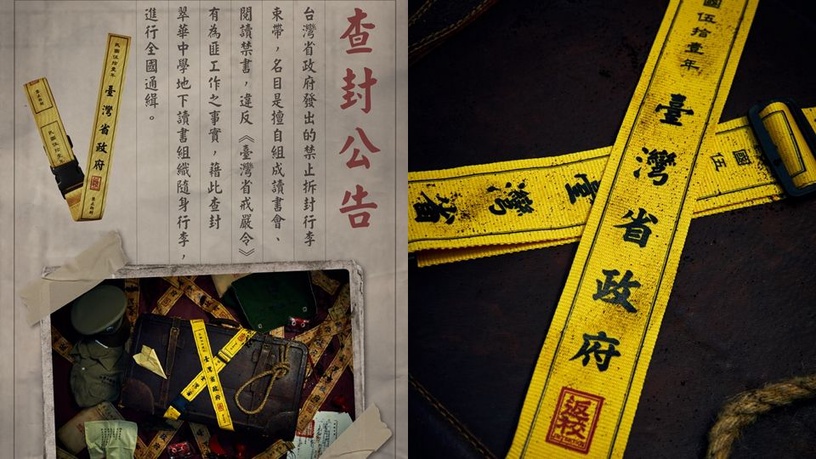 查封公告
台灣省政府發出的禁止拆封行李
束帶，名目是擅自組成讀書會、
閱讀禁書，違反《臺灣省戒嚴令》
有為匪工作之事實，藉此查封
翠華中學地下讀書組織隨身行李，
進行全國通緝。
民國伍拾壹年
臺灣省政府
臺灣省政府
國伍拾壹年
臺灣省政府
返校
國伍
臺灣省